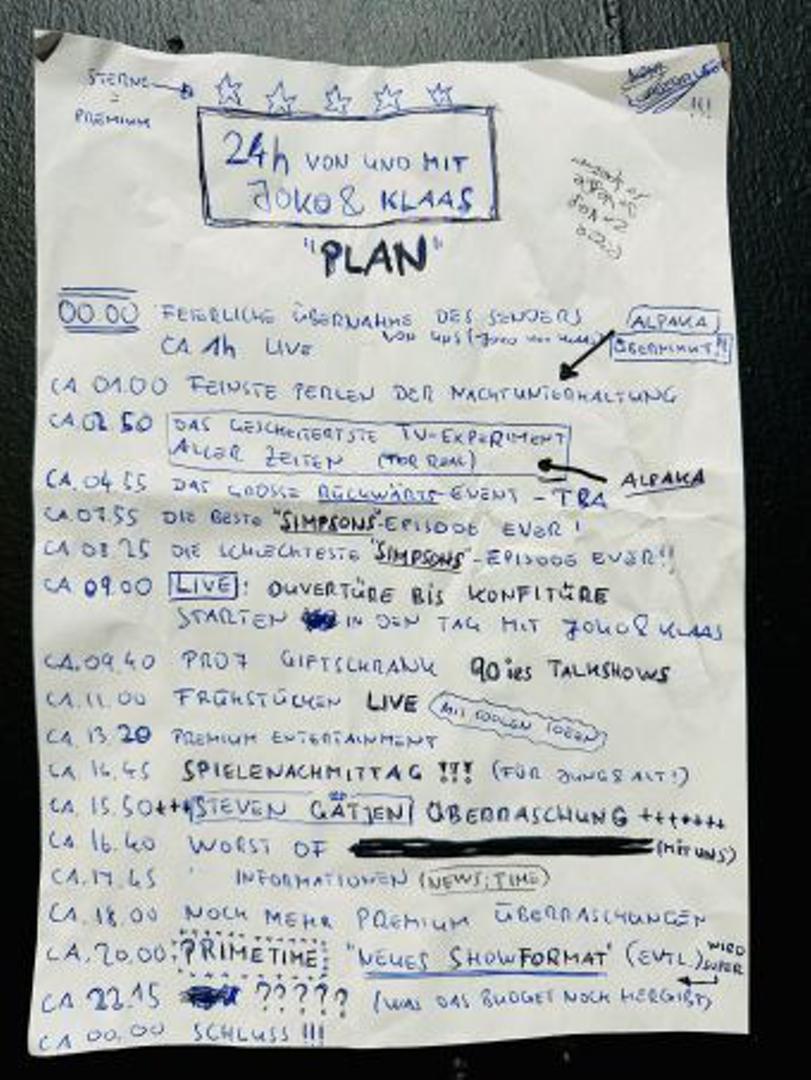 STERNE
=
PREMIUM
24h VON UND MIT
JOKO & KLAAS
"PLAN"
!!!
00.00 FEIERLICHE ÜBERNAHME DES SENDERS
VON UNS (JOKO UND KLAAS)
CA 1h LIVE
ALPAKA
ÜBERNIMMT!!
CA 01.00 FEINSTE PERLEN DER NACHTUNTERHALTUNG
CA.02.50 DAS GESCHEITERTSTE TV-EXPERIMENT
ALLER ZEITEN (FOR REAL)
ALPAKA
CA.04.55 DAS GROSSE RÜCKWÄRTS-EVENT - TBA
CA.07.55 DIE BESTE "SIMPSONS"-EPISODE EVER!
CA 08.25 DIE SCHLECHTESTE "SIMPSONS"-EPISODE EVER!!
CA 09.00 LIVE: OUVERTÜRE BIS KONFITÜRE
STARTEN IN DEN TAG MIT JOKO & KLAAS
CA.09.40 PRO7 GIFTSCHRANK 90'ies TALKSHOWS
CA.11.00 FRÜHSTÜCKEN LIVE (MIT COOLEN IDEEN)
CA 13.20 PREMIUM ENTERTAINMENT
CA 14.45 SPIELENACHMITTAG !!! (FÜR JUNG & ALT!)
CA.15.50+++STEVEN GÄTJEN ÜBERRASCHUNG +++++++
CA 16.40 WORST OF (MIT UNS)
CA.17.45 INFORMATIONEN (NEWS:TIME)
CA.18.00 NOCH MEHR PREMIUM ÜBERRASCHUNGEN
CA.20.00: PRIMETIME: "NEUES SHOWFORMAT" (EVTL.) WIRD SUPER
CA 22.15 ????? (WAS DAS BUDGET NOCH HERGIBT)
CA 00.00 SCHLUSS !!!